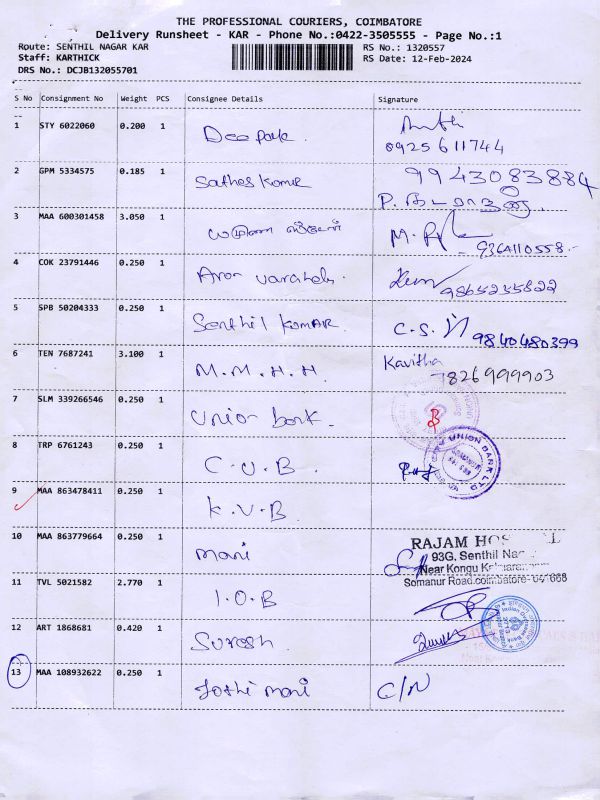 THE PROFESSIONAL COURIERS, COIMBATORE
Delivery Runsheet - KAR - Phone No.:0422-3505555 - Page No.:1
Route: SENTHIL NAGAR KAR
RS No.: 1320557
Staff: KARTHICK
RS Date: 12-Feb-2024
DRS No.: DCJB132055701
S No Consignment No Weight PCS Consignee Details Signature
1 STY 6022060 0.200 1 Deepak.
0925611744
2 GPM 5334575 0.185 1 Sathes Komar 9943083884
3 MAA 600301458 3.050 1 9364110558
4 COK 23791446 0.250 1 Aron varahda. 9865235822
5 SPB 50204333 0.250 1 Senthil Komar. C.S. 9840480399
6 TEN 7687241 3.100 1 M.M.H.H Kavitha
7826999903
7 SLM 339266546 0.250 1 Union bank.
8 TRP 6761243 0.250 1 C.U.B. UNION BANK LTD
9 MAA 863478411 0.250 1 K.V.B
10 MAA 863779664 0.250 1 mani RAJAM
93G, Senthil
Near Kongu
Somanur Road, coimbatore-
11 TVL 5021582 2.770 1 I.O.B
12 ART 1868681 0.420 1 Suresh
13 MAA 108932622 0.250 1 Jothi mani C/N